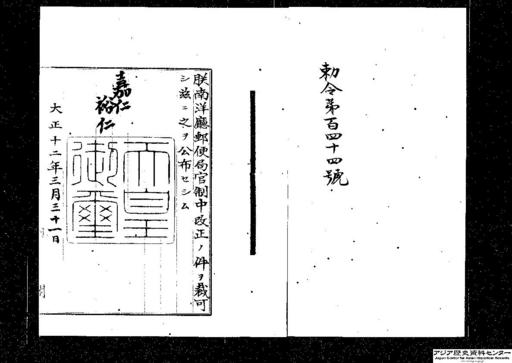 勅令第百四十四號
朕南洋廳郵便局官制中改正ノ件ヲ裁可
シ茲ニ之ヲ公布セシム
嘉仁
裕仁
天皇
御璽
大正十二年三月三十一日
アジア歴史資料センター
Japan Center for Asian Historical Records